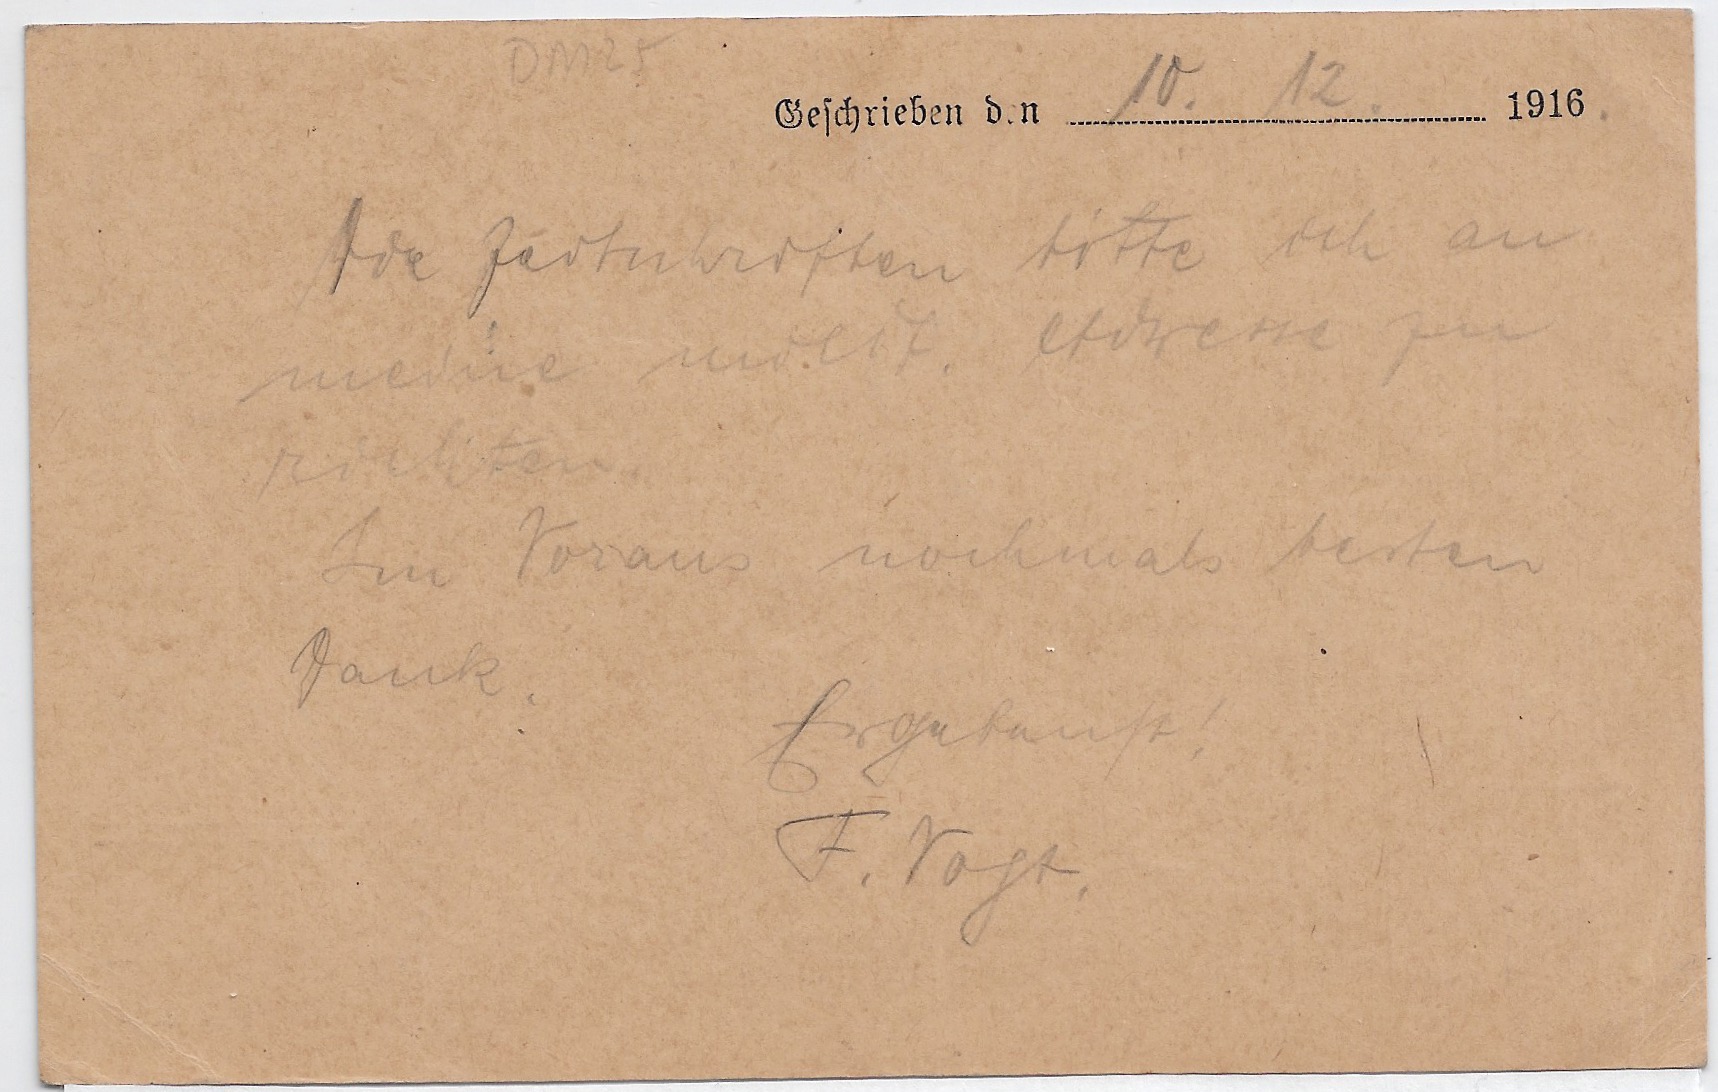 DM 25
Geschrieben den 10. 12. 1916.
Die Zeitschriften bitte ich an
meine milit. Adresse zu
richten.
Im Voraus nochmals besten
Dank.
Ergebenst!
F. Vogt.